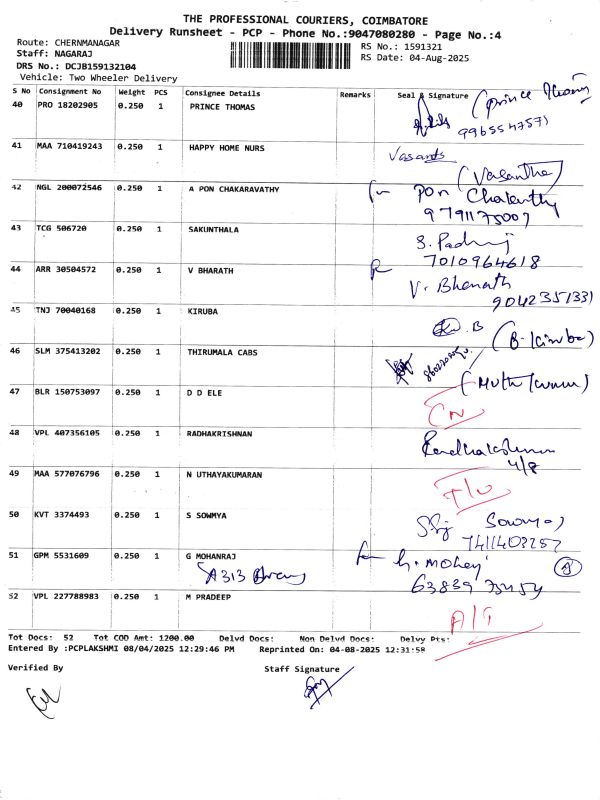 THE PROFESSIONAL COURIERS, COIMBATORE
Delivery Runsheet - PCP - Phone No.:9047080280 - Page No.:4
Route: CHERNMANAGAR
Staff: NAGARAJ
DRS No.: DCJB159132104
Vehicle: Two Wheeler Delivery
RS No.: 1591321
RS Date: 04-Aug-2025
S No Consignment No Weight PCS Consignee Details Remarks Seal & Signature
40 PRO 18202905 0.250 1 PRINCE THOMAS
(prince Thomas
9965547571
41 MAA 710419243 0.250 1 HAPPY HOME NURS
Vasantha
(Vasantha)
42 NGL 200072546 0.250 1 A PON CHAKARAVATHY
9791175007
43 TCG 506720 0.250 1 SAKUNTHALA
7010964618
44 ARR 30504572 0.250 1 V BHARATH
V. Bharath
9042351331
45 TNJ 70040168 0.250 1 KIRUBA
(B. Kiruba)
46 SLM 375413202 0.250 1 THIRUMALA CABS
47 BLR 150753097 0.250 1 D D ELE
CN
48 VPL 407356105 0.250 1 RADHAKRISHNAN
Radhakrishnan
4/8
49 MAA 577076796 0.250 1 N UTHAYAKUMARAN
50 KVT 3374493 0.250 1 S SOWMYA
7411403257
51 GPM 5531609 0.250 1 G MOHANRAJ
A313
52 VPL 227788983 0.250 1 M PRADEEP
Tot Docs: 52 Tot COD Amt: 1200.00 Delvd Docs: Non Delvd Docs: Delvy Pts:
Entered By :PCPLAKSHMI 08/04/2025 12:29:46 PM Reprinted On: 04-08-2025 12:31:58
Verified By Staff Signature